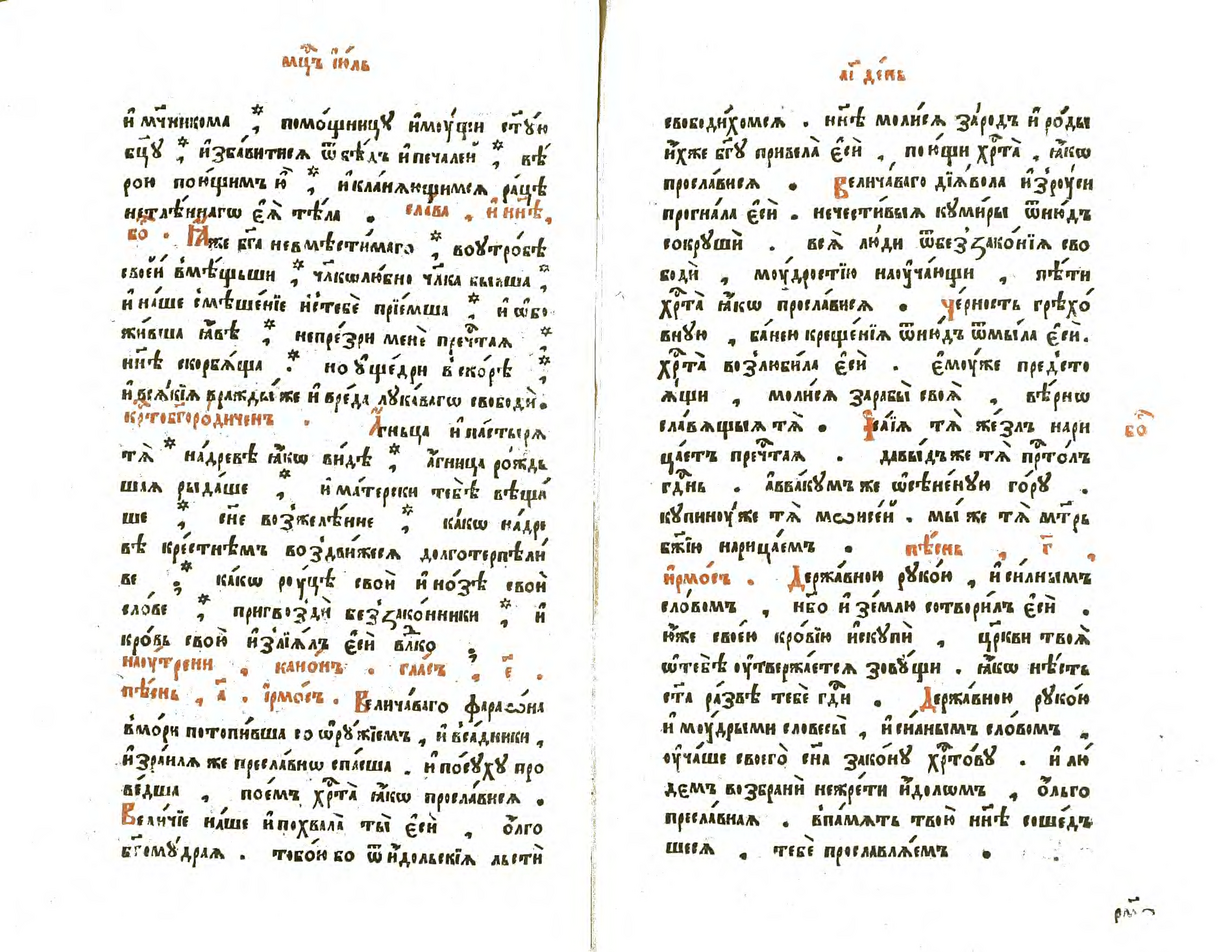 мц҃ъ ію́ль
и҆ мч҃никома * , помо́щницу и҆моу́щи ст҃ую
бц҃у * , и҆збавитисѧ ѿ бѣ́дъ и҆ печалей * , вѣ́
рою пою́щимъ ю҆̀ * , и҆ кланѧ́ющимсѧ ра́цѣ
нетлѣ́ннагѡ є҆ѧ̀ тѣ́ла . сла́ва , и҆ ны́нѣ ,
бо҃ . Ꙗ҆́же бг҃а невмѣсти́маго * , во утро́бѣ
свое́й вмѣ́щьши * , чл҃колю́бно чл҃ка бы́вша * ,
и҆ на́ше смѣше́нїе и҆с тебѐ прїе́мша * , и҆ ѡ҆бо
жи́вша ꙗ҆́вѣ * , непре́зри менѐ преч҃таѧ *
нн҃ѣ скорбѧ́ща * . но ᲂу҆ще́дри вско́рѣ * ,
и҆ всѧ́кїѧ вражды́ же и҆ вре́да лука́вагѡ свободѝ .
кр҃тобг҃оро́диченъ . А҆́гньца и҆ па́стырѧ
тѧ̀ * на́древѣ ꙗ҆́кѡ ви́дѣ * , а҆́гница ро́ждь
шаѧ рыда́ше * , и҆ ма́терски тебѣ̀ вѣща́
ше * , сн҃е возжеле́нне * , ка́кѡ на́дре
вѣ кре́стнѣмъ воздви́жесѧ долготерпѣли́
ве * , ка́кѡ роу́цѣ своѝ и҆ но́зѣ своѝ
сло́ве * , пригвоздѝ беззако́нники * , и҆
кро́вь свою̀ и҆злїѧ́лъ є҆сѝ вл҃ко ,
на оу́трени , кано́нъ . гла́съ , є҃ .
пѣ́снь , а҃ . і҆рмо́съ . Велича́ваго фараѡ́на
в мо́ри потопи́вша со ѻ҆ру́жїемъ , и҆ вса́дники ,
и҆зра́илѧ же пресла́внѡ спа́сша . и҆ по су́ху про
ве́дша , пое́мъ хр҃та̀ ꙗ҆́кѡ просла́висѧ .
Вели́чїе на́ше и҆ похвала̀ ты̀ є҆сѝ , о҆́лго
бг҃ому́драѧ . тобо́ю бо ѿ и҆́дольскїѧ льстѝ
аі҃ де́нь
свободи́хомсѧ . нн҃ѣ моли́сѧ за ро́дъ и҆ ро́ды
и҆́хже бг҃у привела̀ є҆сѝ , пою́щи хр҃та̀ , ꙗ҆́кѡ
просла́висѧ . Велича́ваго дїѧ́вола и҆з роу́си
прогна́ла є҆сѝ . нечести́выѧ куми́ры ѿню́дъ
сокрушѝ . всѧ̀ лю́ди ѿ беззако́нїѧ сво
бодѝ , моу́дростїю наоуча́ющи , пѣ́ти
хр҃та̀ ꙗ҆́кѡ просла́висѧ . Че́рность грѣхо́
вную , ба́нею креще́нїѧ ѿню́дъ ѿмы́ла є҆сѝ .
хр҃та̀ возлюби́ла є҆сѝ . є҆моу́же предсто
ѧ́щи , моли́сѧ за рабы̀ своѧ̀ , вѣ́рнѡ
сла́вѧщыѧ тѧ̀ . І҆са́їѧ тѧ̀ же́злъ нари
ца́етъ преч҃таѧ . давы́дъ же тѧ̀ пр҃то́лъ
гд҃нь . а҆вваку́мъ же ѡ҆сѣне́ную го́ру .
купиноу́ же тѧ̀ мѡисе́й . мы́ же тѧ̀ мт҃рь
бж҃їю нарица́емъ . пѣ́снь , г҃ ,
бо҃
і҆рмо́съ . Держа́вною руко́ю , и҆ си́лнымъ
сло́вомъ , нб҃о и҆ зе́млю сотвори́лъ є҆сѝ .
ю҆́же свое́ю кро́вїю и҆скупѝ , цр҃кви твоѧ̀
ѡ҆ тебѣ̀ оутвержа́етсѧ зову́щи . ꙗ҆́кѡ нѣ́сть
ст҃а ра́звѣ тебѐ гд҃и . Держа́вною руко́ю
и҆ моу́дрыми словесы̀ , и҆ си́лнымъ сло́вомъ ,
оуча́ше своего̀ сн҃а зако́ну хр҃то́ву . и҆ лю́
демъ возбранѝ не жре́ти и҆́доломъ , о҆́льго
пресла́внаѧ . в па́мѧть твою̀ нн҃ѣ соше́дъ
шесѧ , тебѐ прославлѧ́емъ .